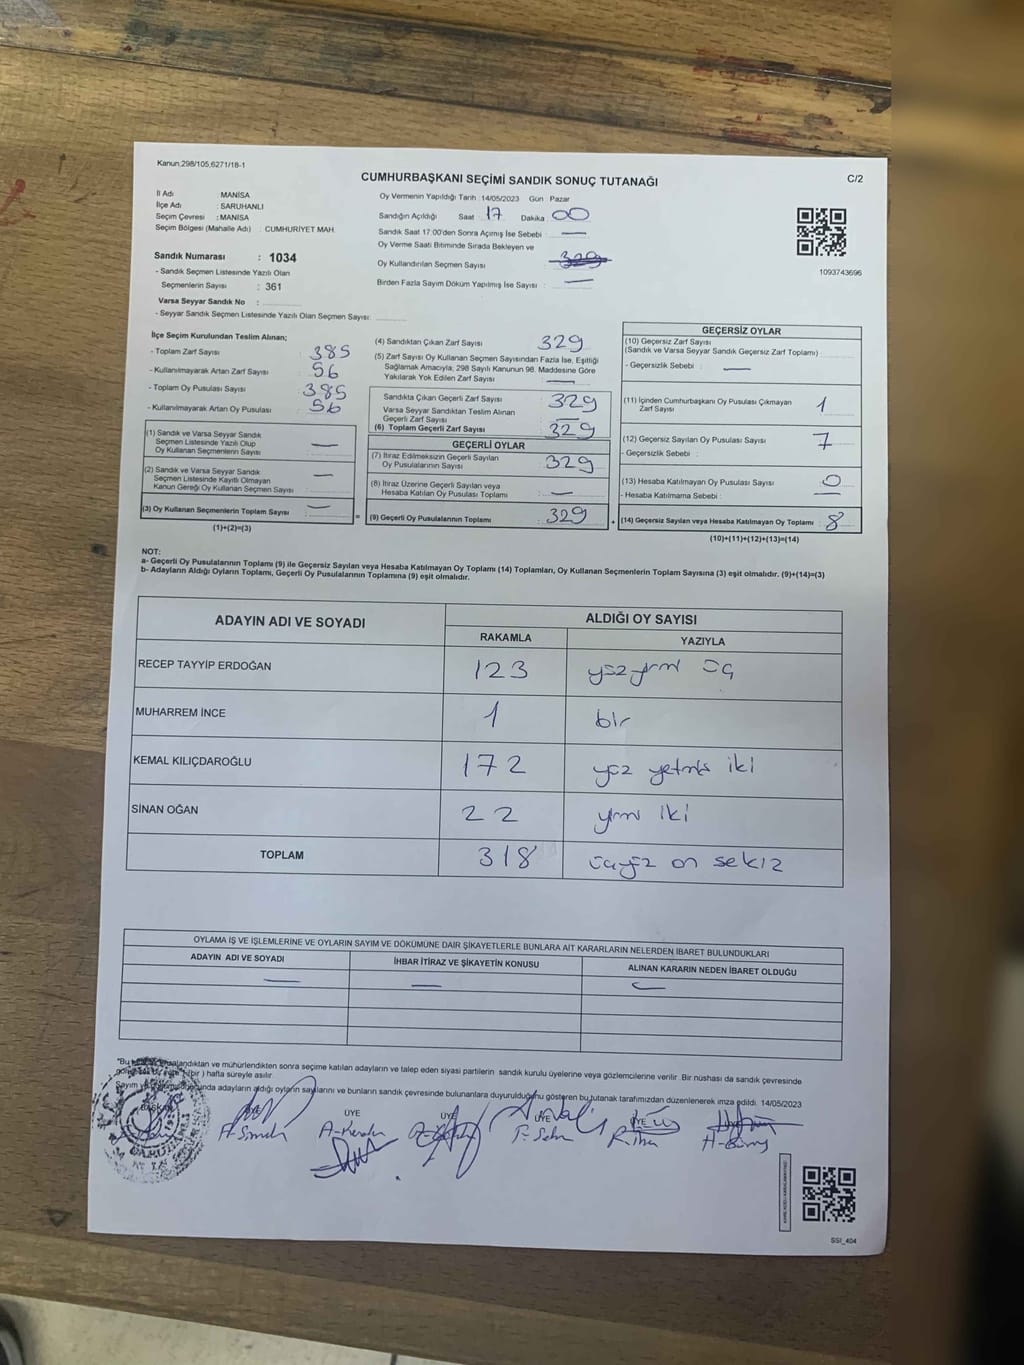 Kanun;298/105,6271/18-1
CUMHURBAŞKANI SEÇİMİ SANDIK SONUÇ TUTANAĞI
C/2
İl Adı : MANİSA
İlçe Adı : SARUHANLI
Seçim Çevresi : MANİSA
Seçim Bölgesi (Mahalle Adı) : CUMHURİYET MAH.
Oy Vermenin Yapıldığı Tarih :14/05/2023 Gün Pazar
Sandığın Açıldığı Saat 17 Dakika 00
Sandık Saat 17:00'den Sonra Açılmış İse Sebebi : —
Oy Verme Saati Bitiminde Sırada Bekleyen ve
Oy Kullandırılan Seçmen Sayısı
Birden Fazla Sayım Döküm Yapılmış İse Sayısı : —
1093743696
Sandık Numarası : 1034
- Sandık Seçmen Listesinde Yazılı Olan
Seçmenlerin Sayısı : 361
Varsa Seyyar Sandık No :
- Seyyar Sandık Seçmen Listesinde Yazılı Olan Seçmen Sayısı:
İlçe Seçim Kurulundan Teslim Alınan;
- Toplam Zarf Sayısı 385
- Kullanılmayarak Artan Zarf Sayısı 56
- Toplam Oy Pusulası Sayısı 385
- Kullanılmayarak Artan Oy Pusulası 56
(1) Sandık ve Varsa Seyyar Sandık
Seçmen Listesinde Yazılı Olup
Oy Kullanan Seçmenlerin Sayısı : —
(2) Sandık ve Varsa Seyyar Sandık
Seçmen Listesinde Kayıtlı Olmayan
Kanun Gereği Oy Kullanan Seçmen Sayısı : —
(3) Oy Kullanan Seçmenlerin Toplam Sayısı : —
(1)+(2)=(3)
(4) Sandıktan Çıkan Zarf Sayısı 329
(5) Zarf Sayısı Oy Kullanan Seçmen Sayısından Fazla İse, Eşitliği
Sağlamak Amacıyla, 298 Sayılı Kanunun 98. Maddesine Göre
Yakılarak Yok Edilen Zarf Sayısı : —
Sandıkta Çıkan Geçerli Zarf Sayısı 329
Varsa Seyyar Sandıktan Teslim Alınan
Geçerli Zarf Sayısı : —
(6) Toplam Geçerli Zarf Sayısı 329
GEÇERLİ OYLAR
(7) İtiraz Edilmeksizin Geçerli Sayılan
Oy Pusulalarının Sayısı 329
(8) İtiraz Üzerine Geçerli Sayılan veya
Hesaba Katılan Oy Pusulası Toplamı : —
(9) Geçerli Oy Pusulalarının Toplamı : 329
GEÇERSİZ OYLAR
(10) Geçersiz Zarf Sayısı
(Sandık ve Varsa Seyyar Sandık Geçersiz Zarf Toplamı)
- Geçersizlik Sebebi : —
(11) İçinden Cumhurbaşkanı Oy Pusulası Çıkmayan
Zarf Sayısı 1
(12) Geçersiz Sayılan Oy Pusulası Sayısı 7
- Geçersizlik Sebebi :
(13) Hesaba Katılmayan Oy Pusulası Sayısı 0
- Hesaba Katılmama Sebebi : —
(14) Geçersiz Sayılan veya Hesaba Katılmayan Oy Toplamı : 8
(10)+(11)+(12)+(13)=(14)
NOT:
a- Geçerli Oy Pusulalarının Toplamı (9) ile Geçersiz Sayılan veya Hesaba Katılmayan Oy Toplamı (14) Toplamları, Oy Kullanan Seçmenlerin Toplam Sayısına (3) eşit olmalıdır. (9)+(14)=(3)
b- Adayların Aldığı Oyların Toplamı, Geçerli Oy Pusulalarının Toplamına (9) eşit olmalıdır.
ADAYIN ADI VE SOYADI
ALDIĞI OY SAYISI
RAKAMLA YAZIYLA
RECEP TAYYİP ERDOĞAN 123 yüz yirmi üç
MUHARREM İNCE 1 bir
KEMAL KILIÇDAROĞLU 172 yüz yetmiş iki
SİNAN OĞAN 22 yirmi iki
TOPLAM 318 üçyüz on sekiz
OYLAMA İŞ VE İŞLEMLERİNE VE OYLARIN SAYIM VE DÖKÜMÜNE DAİR ŞİKAYETLERLE BUNLARA AİT KARARLARIN NELERDEN İBARET BULUNDUKLARI
ADAYIN ADI VE SOYADI İHBAR İTİRAZ VE ŞİKAYETİN KONUSU ALINAN KARARIN NEDEN İBARET OLDUĞU
— — —
"Bu mühürlendikten sonra seçime katılan adayların ve talep eden siyasi partilerin sandık kurulu üyelerine veya gözlemcilerine verilir. Bir nüshası da sandık çevresinde
hafta süreyle asılır.
Sayım adayların aldığı oyların sayılarını ve bunların sandık çevresinde bulunanlara duyurulduğunu gösteren bu tutanak tarafımızdan düzenlenerek imza edildi. 14/05/2023
BAŞKAN ÜYE ÜYE ÜYE ÜYE ÜYE
SSI_404